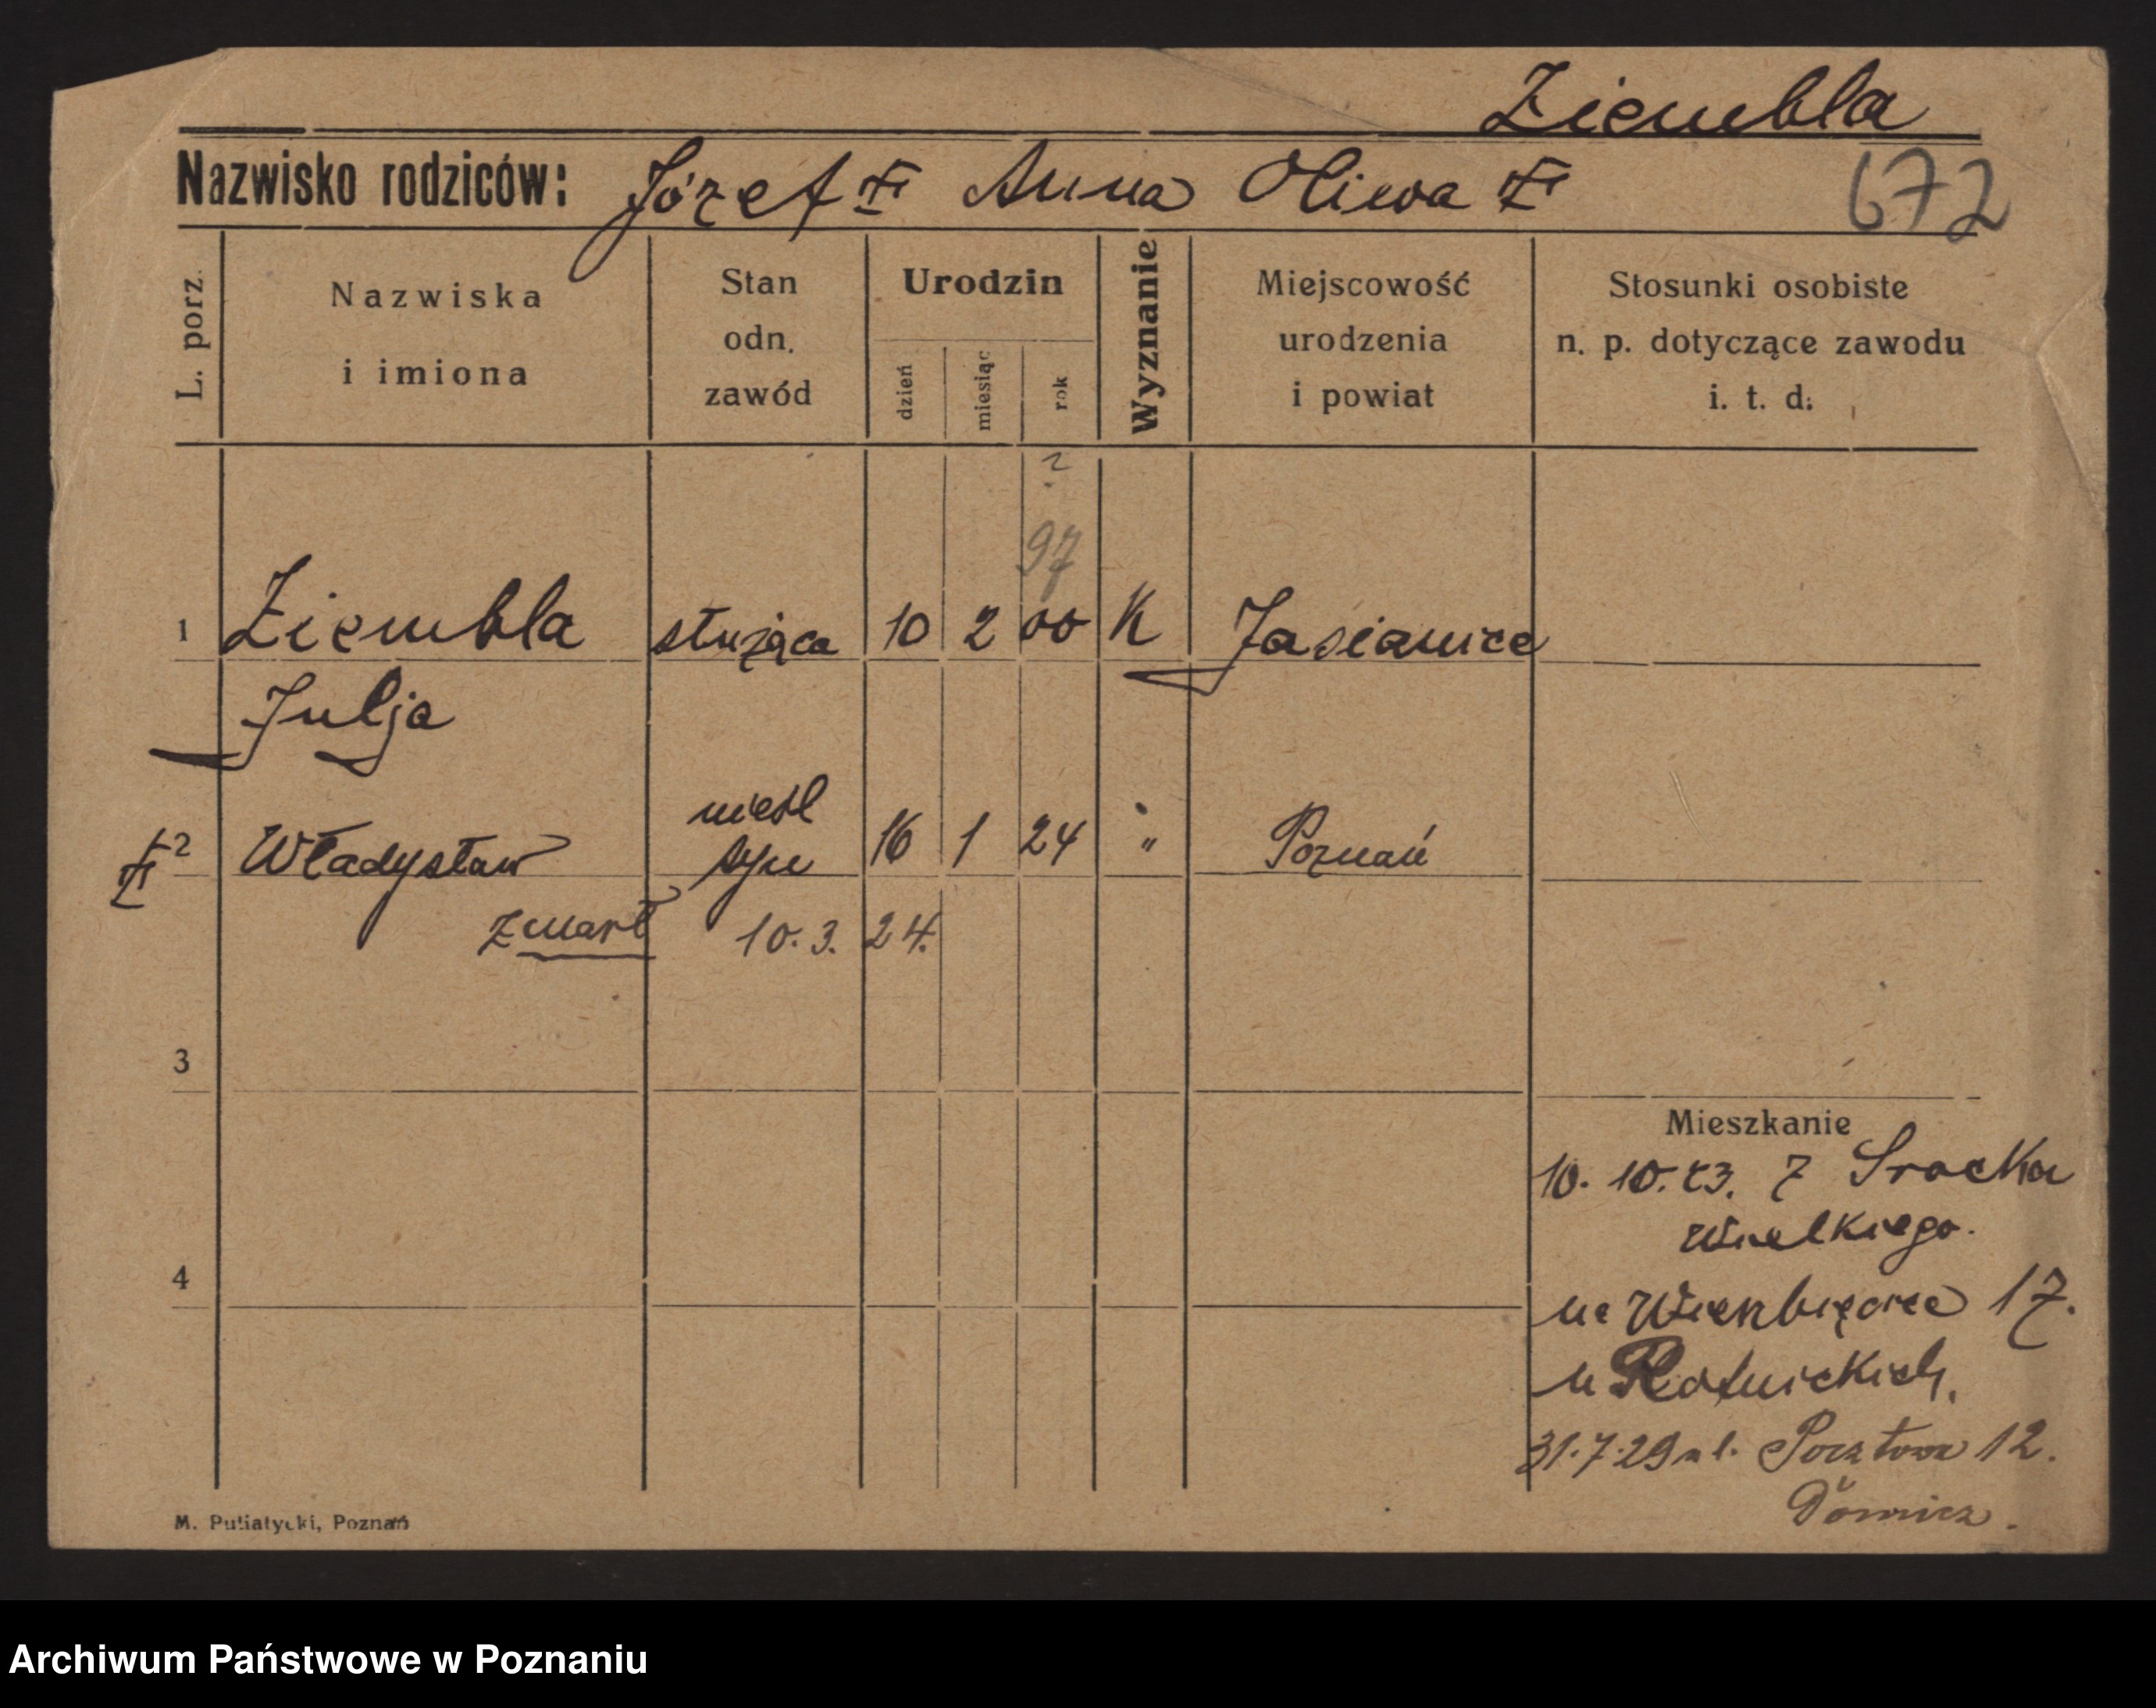 Ziembla
Nazwisko rodziców: Józef Anna Oliwa
672
L. porz.
Nazwiska
i imiona
Stan
odn.
zawód
Urodzin
dzień
miesiąc
rok
Wyznanie
Miejscowość
urodzenia
i powiat
Stosunki osobiste
n. p. dotyczące zawodu
i. t. d.
?
97
1 Ziembla służąca 10 2 00 K Jasianice
Julja
nieśl
2 Władysław syn 16 1 24 " Poznań
zmarł 10. 3. 24.
3
Mieszkanie
10. 10. 23. z
Wielkiego.
4
Wierzbięcice 17.
u
31.7.29 ul. Pocztowa 12.
M. Putiatycki, Poznań
Archiwum Państwowe w Poznaniu